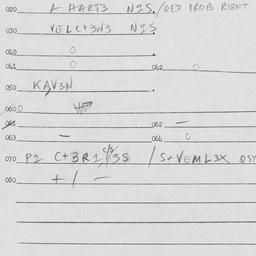 020 K HART3 NIS. /UED PROB RIGHT
030 VELC+3N3 NIS
040 0
041 0 042 0
050 KAV3N
060
061 062 —
063 — 064 0
070 P2 C+3R1 /3S / S+VEML3X QSY
080 + / —